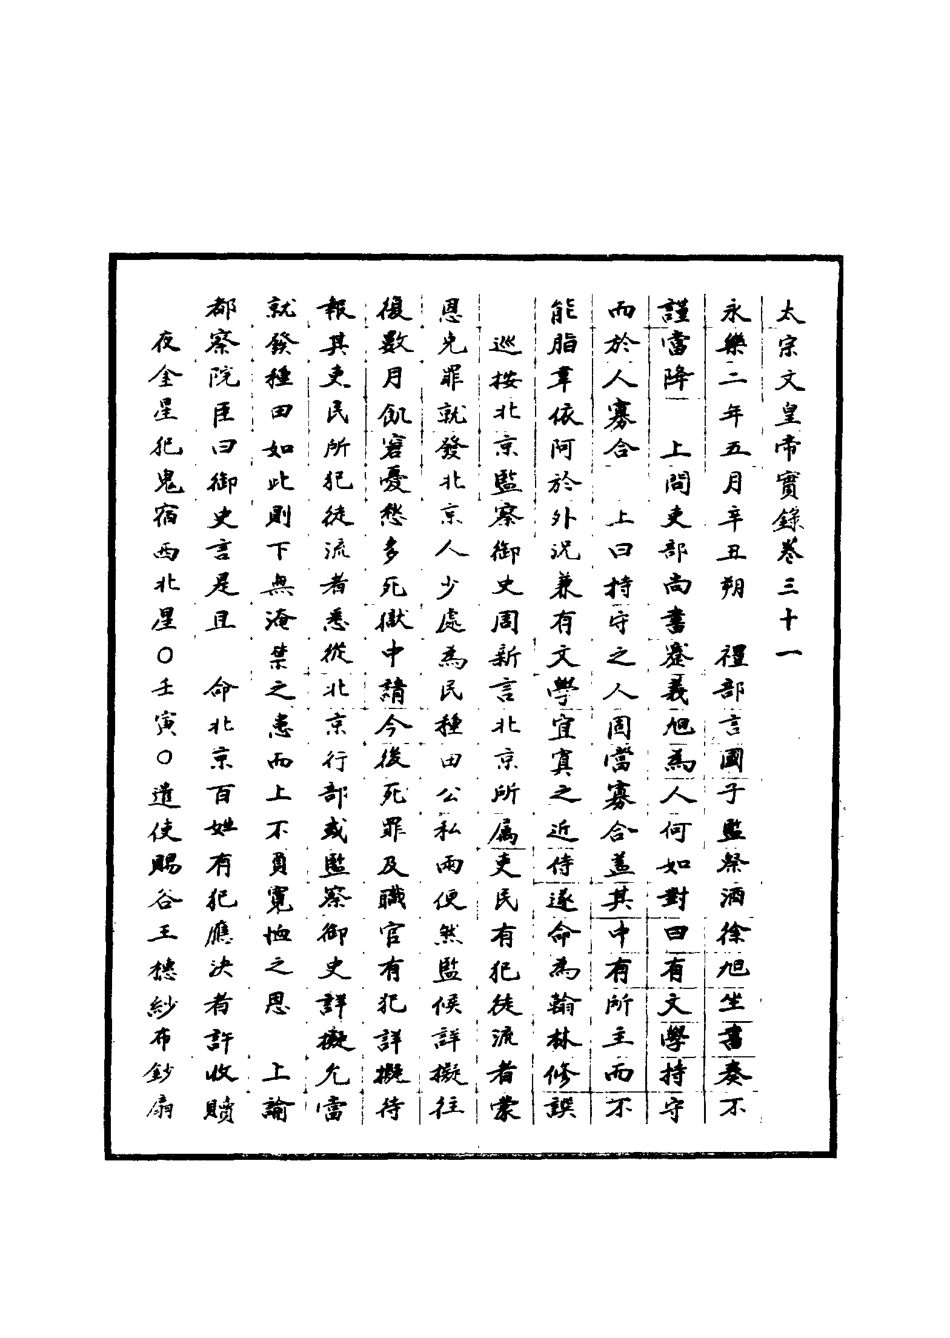 太宗文皇帝實錄卷三十一
永樂二年五月辛丑朔　禮部言國子監祭酒徐旭坐書奏不
謹當降　上問吏部尚書蹇義旭為人何如對曰有文學持守
而於人寡合　上曰持守之人固當寡合蓋其中有所主而不
能脂韋依阿於外況兼有文學宜寘之近侍遂命為翰林修譔
巡按北京監察御史周新言北京所属吏民有犯徒流者蒙
恩免罪就發北京人少處為民種田公私兩便然監候詳擬往
復數月飢窘憂愁多死獄中請今後死罪及職官有犯詳擬待
報其吏民所犯徒流者悉從北京行部或監察御史詳擬允當
就發種田如此則下無淹禁之患而上不負寬恤之恩　上諭
都察院臣曰御史言是且　命北京百姓有犯應決者許收贖
夜金星犯鬼宿西北星〇壬寅〇遣使賜谷王橞紗布鈔扇